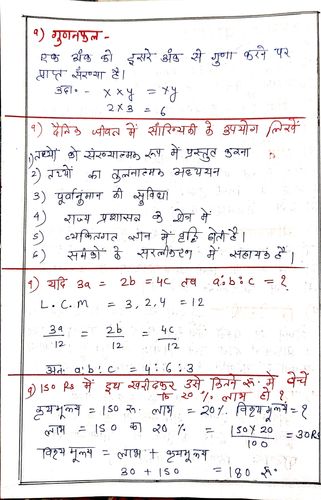 १) गुणनफल -
एक अंक को दूसरे अंक से गुणा करने पर
प्राप्त संख्या है।
उदा॰ - x × y = xy
2 × 3 = 6
१) दैनिक जीवन में सांख्यिकी के उपयोग लिखें
1) तथ्यों को संख्यात्मक रूप में प्रस्तुत करना
2) तथ्यों का तुलनात्मक अध्ययन
3) पूर्वानुमान की सुविधा
4) राज्य प्रशासन के क्षेत्र में
5) व्यक्तिगत ज्ञान में वृद्धि होती है।
6) समंकों के सरलीकरण में सहायक है।
१) यदि 3a = 2b = 4c तब a:b:c = ?
L.C.M = 3,2,4 = 12
3a/12 = 2b/12 = 4c/12
अतः a:b:c = 4:6:3
१) 150 Rs में खरीदकर उसे कितने रू॰ में बेचें
कि 20% लाभ हो ?
क्रयमूल्य = 150 रू. लाभ = 20% विक्रयमूल्य = ?
लाभ = 150 का 20% = 150×20/100 = 30Rs
विक्रयमूल्य = लाभ + क्रयमूल्य
30 + 150 = 180 रू.